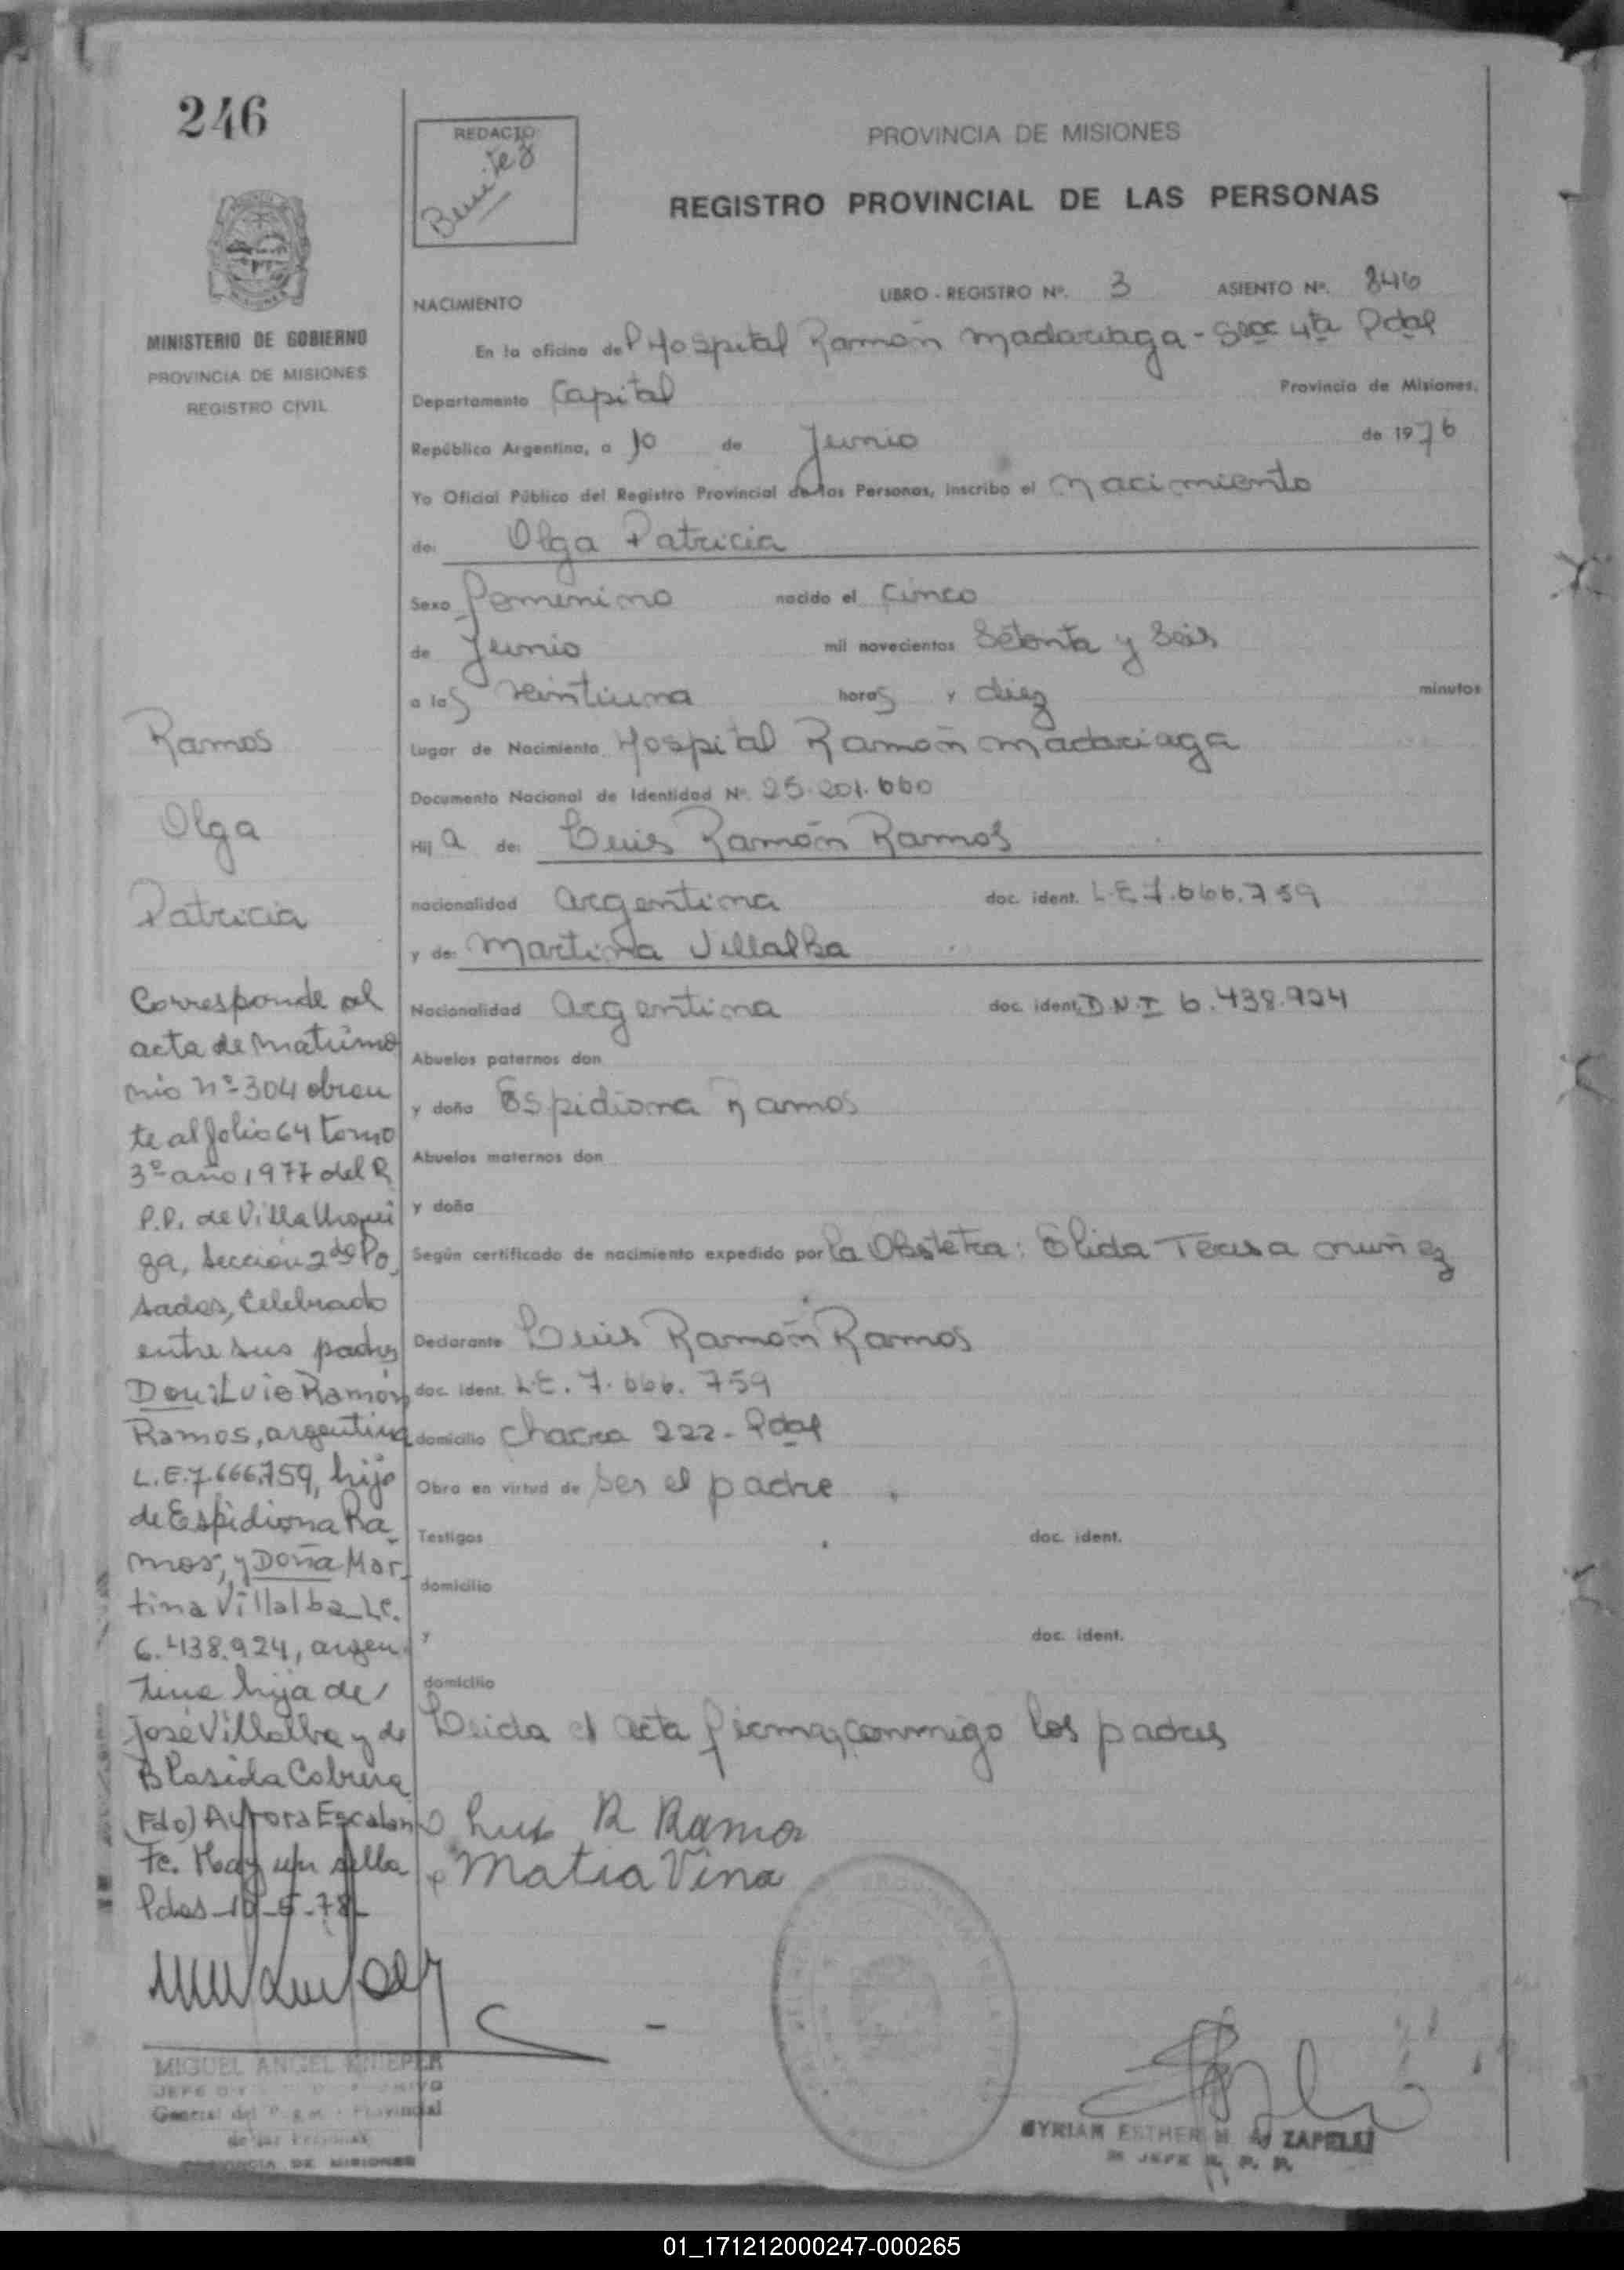 246
REDACTO
Benitez
PROVINCIA DE MISIONES
REGISTRO PROVINCIAL DE LAS PERSONAS
MINISTERIO DE GOBIERNO
PROVINCIA DE MISIONES
REGISTRO CIVIL
NACIMIENTO LIBRO - REGISTRO Nº. 3 ASIENTO Nº. 846
En la oficina del Hospital Ramón Madariaga - Secc 4ta Pdas
Departamento Capital Provincia de Misiones,
República Argentina, a 10 de Junio de 1976
Yo Oficial Público del Registro Provincial de las Personas, inscribo el Nacimiento
de: Olga Patricia
Sexo Femenino nacido el Cinco
de Junio mil novecientos Setenta y Seis
a las Veintiuna horas y diez minutos
Lugar de Nacimiento Hospital Ramón Madariaga
Documento Nacional de Identidad Nº. 25.201.660
Hija de: Luis Ramón Ramos
nacionalidad Argentina doc. ident. L.E 7.666.759
y de: Martina Villalba
Nacionalidad Argentina doc. ident. D.N.I 6.438.924
Abuelos paternos don
y doña Espidiona Ramos
Abuelos maternos don
y doña
Según certificado de nacimiento expedido por la Obstetra: Elida Teresa Nuñez
Declarante Luis Ramón Ramos
doc. ident. L.E. 7.666.759
domicilio Chacra 222 - Pdas
Obra en virtud de Ser el padre
Testigos doc. ident.
domicilio
y doc. ident.
domicilio
Leida el acta firman conmigo los padres
Luis R Ramos
Matia Vina
Ramos
Olga
Patricia
Corresponde al
acta de matrimo
nio nº 304 obran
te al folio 64 tomo
3º año 1977 del R.
P.P. de Villa Urqui
za, Sección 2da Po
sadas, Celebrado
entre sus padres
Don: Luis Ramón
Ramos, argentino
L.E. 7.666.759, hijo
de Espidiona Ra-
mos, y Doña Mar-
tina Villalba Lc.
6.438.924, argen
tina hija de
José Villalba y de
Blasida Cabrera
Fdo) Aurora Escalan
te. Hay un sello
Pdas 10-5-78
MIGUEL ANGEL KNIEPER
JEFE
General del Provincial
de las Personas
PROVINCIA DE MISIONES
MYRIAM ESTHER M. de ZAPELLI
JEFE R. P. P.
01_171212000247-000265